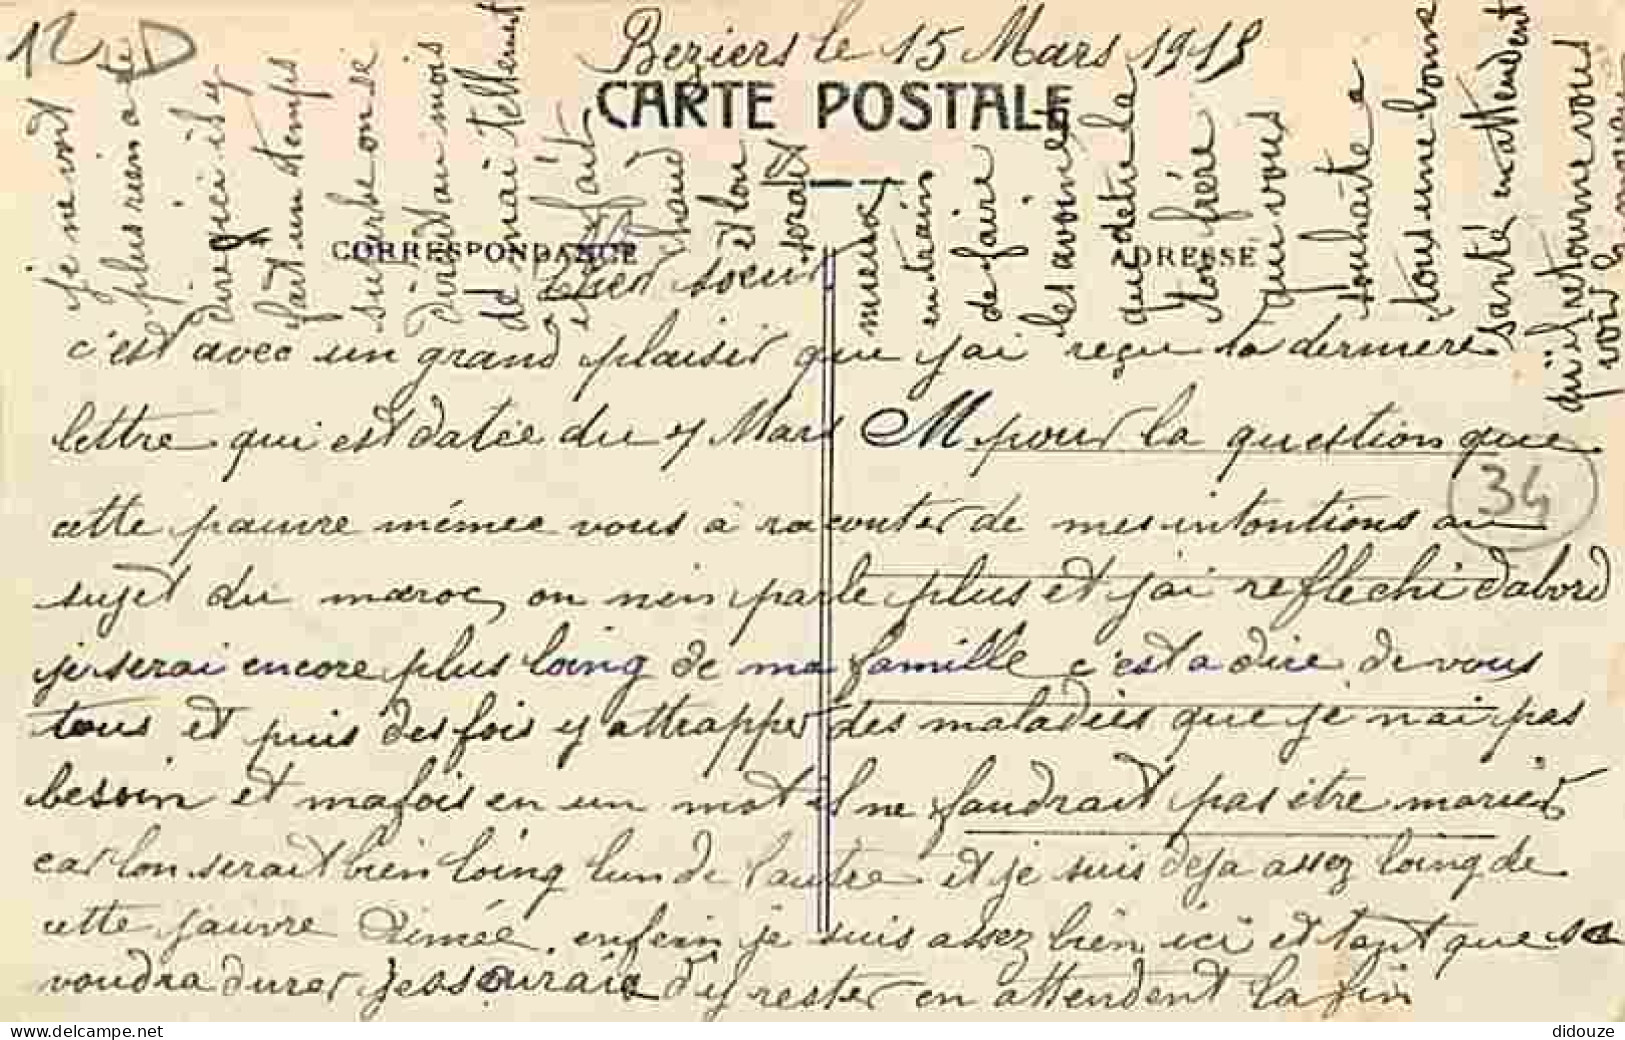 12 D
Beziers le 15 Mars 1915
CARTE POSTALE
CORRESPONDANCE
ADRESSE
Cher soeur
c'est avec un grand plaisir que j'ai reçu ta derniere
lettre qui est datée du 7 Mars M pour la question que
cette pauvre mémée vous à raconter de mes intentions au
sujet du maroc, on n'en parle plus et j'ai reflechi d'abord
je serai encore plus loing de ma famille c'est a dire de vous
tous et puis des fois y attrapper des maladies que je n'ai pas
besoin et mafois en un mot il ne faudrait pas être marier
car lon serait bien loing lun de l'autre et je suis deja assez loing de
cette pauvre Aimée, enfin je suis assez bien ici et tant que sa
voudra durer j'essairais d'y rester en attendent la fin
34
je ne vont
plus rien a te
dire qu'ici il y
fait un temps
superbe on se
dirait au mois
de mai tellement
il fait
chaud
et l'on
serait
mieux
en train
de faire
les avoines
que detre la
ton frère
qui vous
souhaite a
tous une bonne
santé en attendent
qu'il retourne vous
voir
didouze